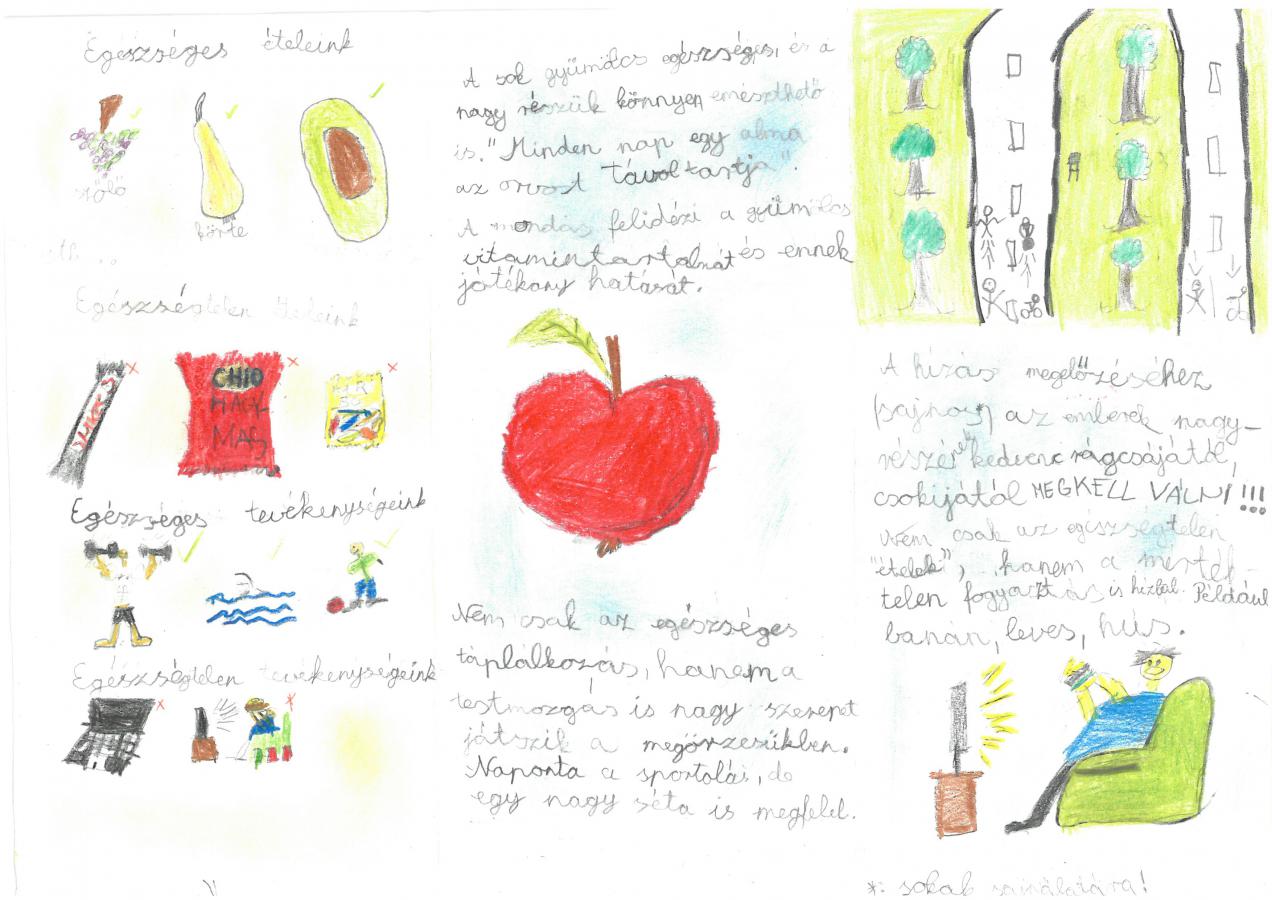 Egészséges ételeink
szőlő
körte
Egészségtelen ételeink
CHIO
MAGY
MAS
Egészséges tevékenységeink
Egészségtelen tevékenységeink
A sok gyümölcs egészséges, és a
nagy részük könnyen emészthető
is. "Minden nap egy alma
az orvost távoltartja".
A mondás felidézi a gyümölcs
vitamintartalmát és ennek
jótékony hatását.
Nem csak az egészséges
táplálkozás, hanem a
testmozgás is nagy szerepet
játszik a megőrzésükben.
Naponta a sportolái, de
egy nagy séta is megfelel.
A hízás megelőzéséhez
(sajnos*) az emberek nagy-
részének kedvenc rágcsájától,
csokijától MEGKELL VÁLNI!!!
Nem csak az egészségtelen
"ételek", hanem a mérték-
telen fogyasztás is hízlal. Például
banán, leves, hús.
*: sokak sajnálatára!